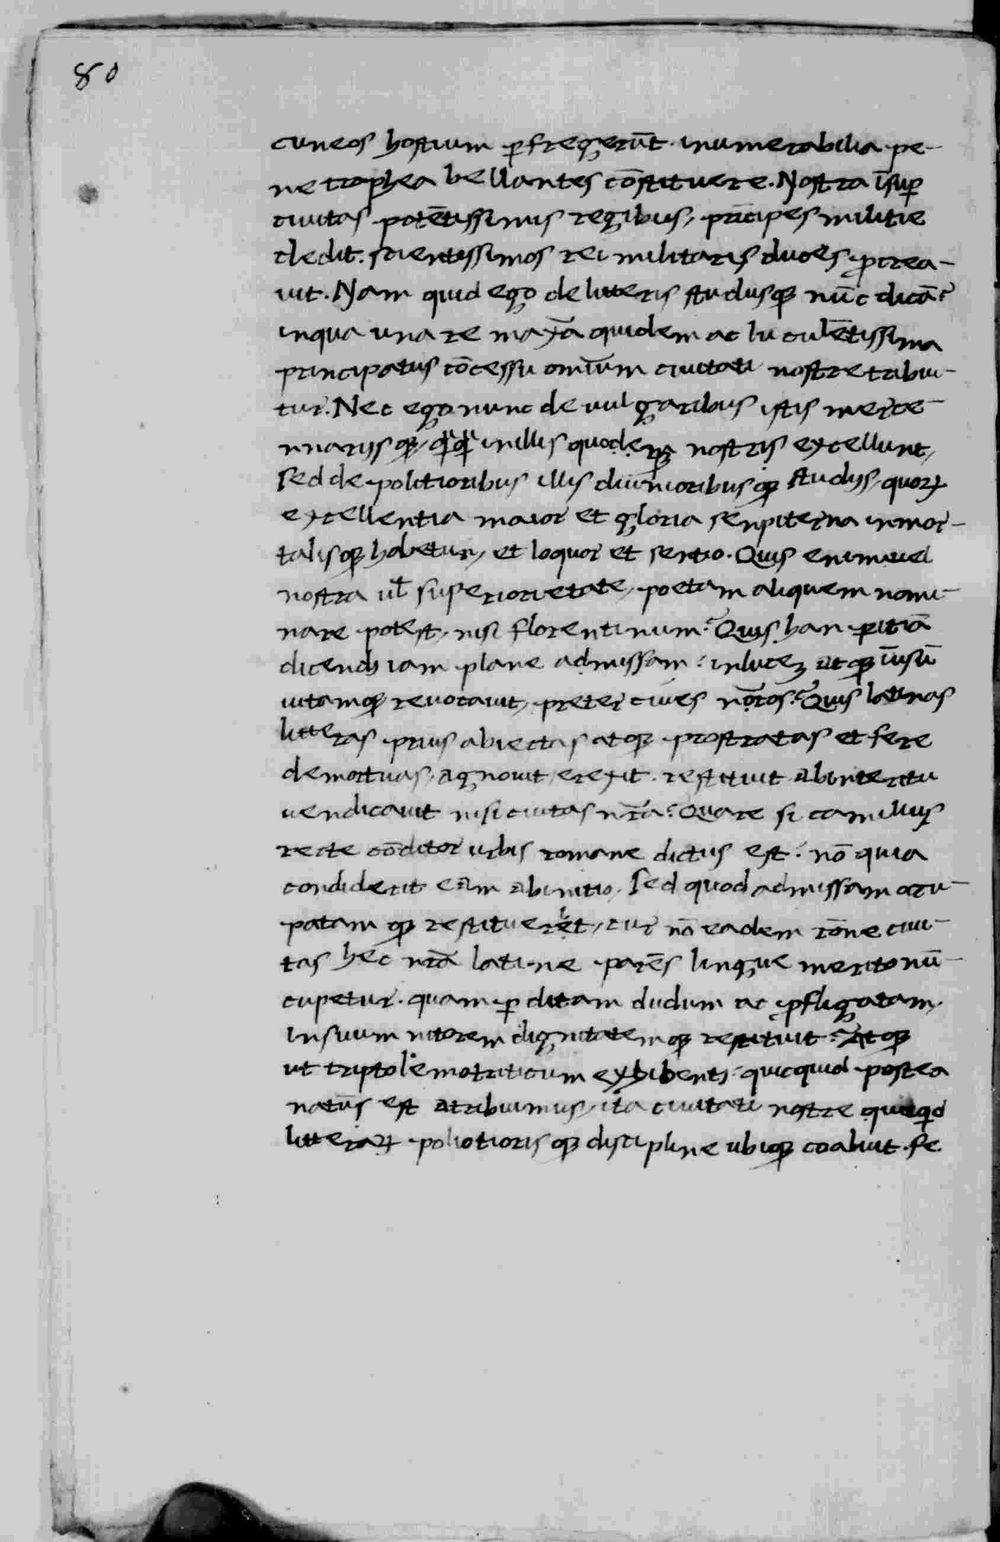 80
cuneos hostium ꝑfregerūt. inumerabilia pe-
ne trophea bellantes cōstituere. Nostra īsuꝑ
ciuitas potētissimis regibus, prīcipes militie
dedit. scientissimos rei militaris duces ꝓcrea-
uit. Nam quid ego de litteris studiisqꝫ nūc dicā?
inqua una re maxīa quidem ac luculētissima
principatus cōcessu omīum ciuitati nostre tribui-
tur. Nec ego nunc de uulgaribus istis merce-
nnariisqꝫ, inillis quodeꝫ nostris excellunt,
sed de politioribus illis diuinioribusqꝫ studijs, quoꝝ
excellentia maior et gloria senpiterna inmor-
talisqꝫ habetur, et loquor et sentio. Quis enim uel
nostra ul̄ superiori etate, poetam aliquem nomi-
nare potest, nisi florentinum? Quis han ꝑitiā
dicendi iam plane admissam: inluceꝫ atqꝫ īusū
uitamqꝫ reuocauit, preter ciues nōros? Quis latinas
litteras prius abiectas atqꝫ prostratas et fere
demortuas, agnouit, erexit. restituit abinteritu
uendicauit nisi ciuitas nr̄a? Quare si camillus
recte cōditor urbis romane dictus est. nō quia
condiderit eam abinitio, sed quod admissam occu-
patamqꝫ restituerit, cur nō eadem rōne ciui-
tas hec nr̄a latine parēs lingue merito nū-
cupetur. quam ꝑditam dudum ac ꝓfligatam.
Insuum nitorem dignitatemqꝫ restituit. Atqꝫ
ut triptolemo triticum exhibenti quicquid postea
natūs est atribuimus, ita ciuitati nostre quicqid
litteraꝝ poliotiorisqꝫ discipline ubiqꝫ coaluit. fe.